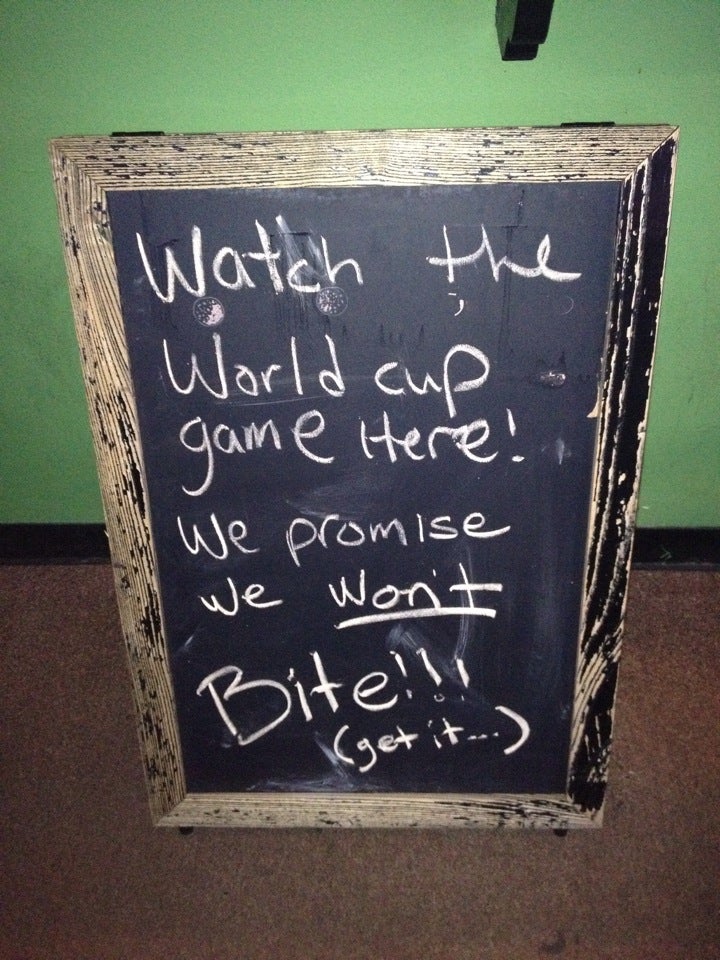 Watch the
World cup
game Here!
We promise
we won't
Bite!!!
(get it...)